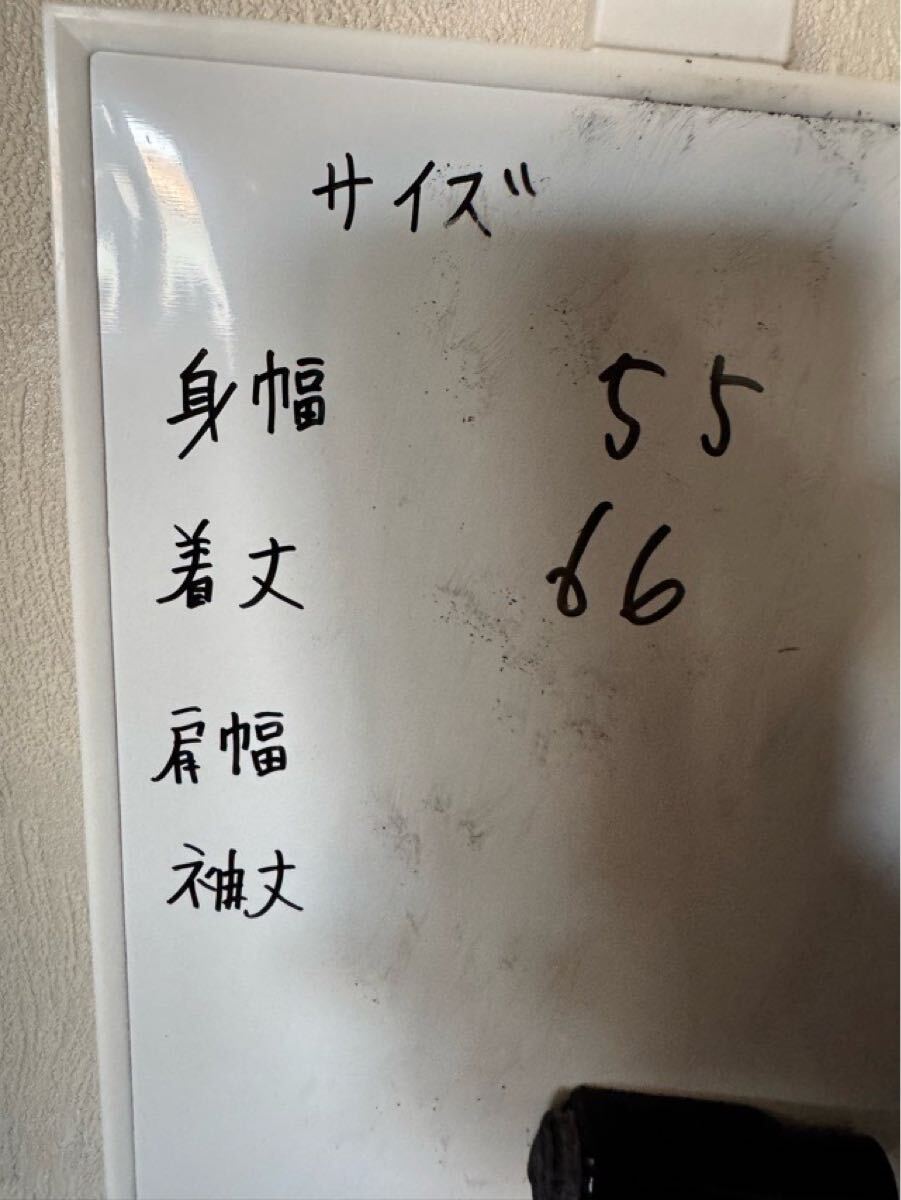 サイズ
身幅 55
着丈 66
肩幅
袖丈